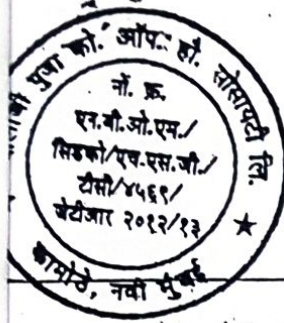 पुजा को. ऑप. हौ. सोसायटी लि.
नों. क्र.
एन.बी.ओ.एम./
सिडको/एच.एस.जी./
टीसी/४५६९/
जेटीआर २०१२/१३
कामोठे, नवी मुंबई